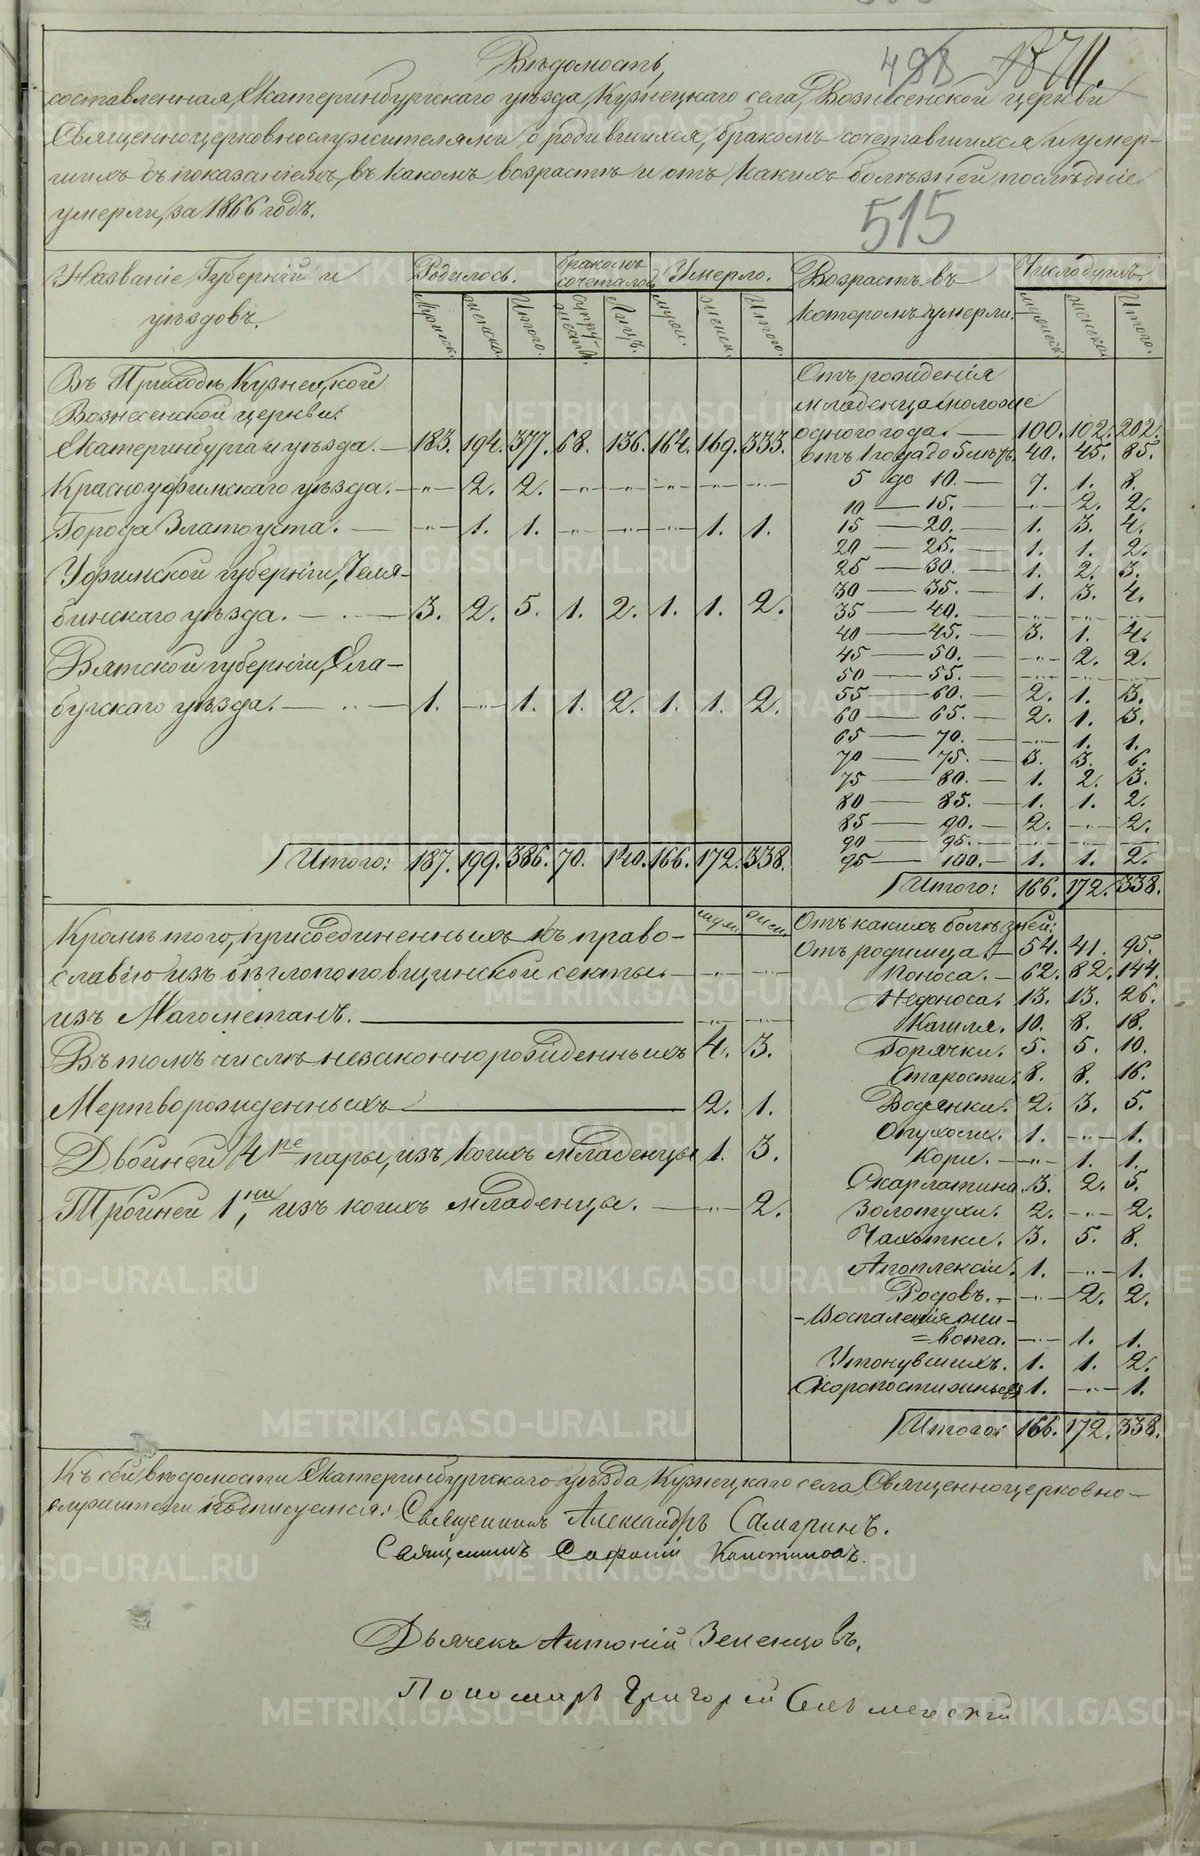 498 1871.
Вѣдомость,
составленная, Екатеринбургскаго уѣзда, Кузнецкаго села, Вознесенской церкви
Священноцерковнослужителями, о родившихся, бракомъ сочетавшихся и умер-
шихъ съ показаніемъ, въ какомъ возрастѣ и отъ какихъ болѣзней послѣдніе
умерли, за 1866 годъ.
515
Названіе Губерній и уѣздовъ. Родилось. Бракомъ сочеталось Умерло. Возрастъ въ которомъ умерли. Число душъ.
Мужеск. женска. Итого. Супру- жествъ. Лицъ. муж. женск. Итого. мужеск. женска. Итого.
Въ Приходѣ Кузнецкой
Вознесенской церкви:
Екатеринбурга и уѣзда. — 183. 194. 377. 68. 136. 164. 169. 333.
Красноуфимскаго уѣзда. — -"- 2. 2. -"- -"- -"- -"- -"-
Города Златоуста. — -"- 1. 1. -"- -"- -"- 1. 1.
Уфимской губерніи, Челя-
бинскаго уѣзда. — 3. 2. 5. 1. 2. 1. 1. 2.
Вятской губерніи, Ела-
бугскаго уѣзда. — 1. -"- 1. 1. 2. 1. 1. 2.
Итого: 187. 199. 386. 70. 140. 166. 172. 338.
Отъ рожденія
младенца моложе
одного года. — 100. 102. 202.
отъ 1 года до 5 лѣтъ. 40. 45. 85.
5 до 10. — 7. 1. 8.
10 — 15. — -"- 2. 2.
15 — 20. — 1. 3. 4.
20 — 25. — 1. 1. 2.
25 — 30. — 1. 2. 3.
30 — 35. — 1. 3. 4.
35 — 40. — -"- -"- -"-
40 — 45. — 3. 1. 4.
45 — 50. — -"- 2. 2.
50 — 55. — -"- -"- -"-
55 — 60. — 2. 1. 3.
60 — 65. — 2. 1. 3.
65 — 70. — -"- 1. 1.
70 — 75. — 3. 3. 6.
75 — 80. — 1. 2. 3.
80 — 85. — 1. 1. 2.
85 — 90. — 2. -"- 2.
90 — 95. — -"- -"- -"-
95 — 100. — 1. 1. 2.
Итого: 166. 172. 338.
муж. жен.
Кромѣ того, присоединенныхъ къ право-
славію изъ бѣглопоповщинской секты. — -"- -"-
изъ Магометанъ. — -"- -"-
Въ томъ числѣ незаконнорожденныхъ 4. 3.
Мертворожденныхъ — 2. 1.
Двойней 4 ре пары, изъ коихъ младенцы 1. 3.
Тройней 1, ни изъ коихъ младенцы. — -"- 2.
Отъ какихъ болѣзней:
Отъ родимца. — 54. 41. 95.
Поноса. — 62. 82. 144.
Недоноса. 13. 13. 26.
Кашля. 10. 8. 18.
Горячки. 5. 5. 10.
Старости. 8. 8. 16.
Водянки. 2. 3. 5.
Опухоли. 1. -"- 1.
Кори. — -"- 1. 1.
Скарлатина 3. 2. 5.
Золотухи. 2. -"- 2.
Чахотки. 3. 5. 8.
Апоплексіи. 1. -"- 1.
Родовъ. — -"- 2. 2.
Воспаленія жи-
=вота. -"- 1. 1.
Утонувшихъ. 1. 1. 2.
Скоропостижныхъ 1. -"- 1.
Итого: 166. 172. 338.
Къ сей вѣдомости Екатеринбургскаго уѣзда, Кузнецкаго села Священноцерковно-
служители подписуемся: Священникъ Александръ Самаринъ.
Священникъ Софоній
Дьячекъ Антоній Земенцовъ.
Пономарь Григорій
METRIKI.GASO-URAL.RU